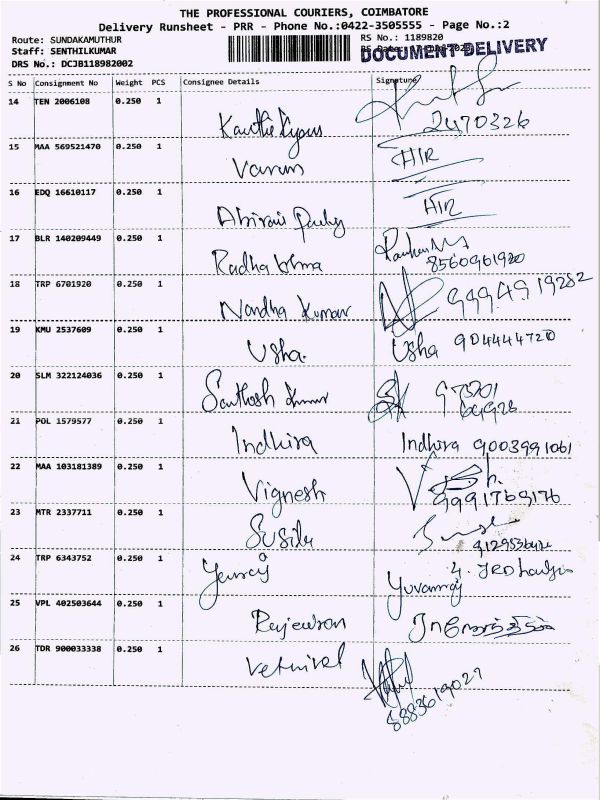 THE PROFESSIONAL COURIERS, COIMBATORE
Delivery Runsheet - PRR - Phone No.:0422-3505555 - Page No.:2
Route: SUNDAKAMUTHUR
RS No.: 1189820
Staff: SENTHILKUMAR
DOCUMENT DELIVERY
DRS No.: DCJB118982002
S No Consignment No Weight PCS Consignee Details Signature
14 TEN 2006108 0.250 1
2470326
15 MAA 569521470 0.250 1 Varun H/R
16 EDQ 16610117 0.250 1 H/R
17 BLR 140209449 0.250 1 Radha
8560961920
18 TRP 6701920 0.250 1 Nandha Kumar
19 KMU 2537609 0.250 1 Usha. Usha 904444720
20 SLM 322124036 0.250 1 Santhosh Kumar
21 POL 1579577 0.250 1 Indhira Indhira 9003991061
22 MAA 103181389 0.250 1 Vignesh
9991769176
23 MTR 2337711 0.250 1 Susila
24 TRP 6343752 0.250 1 Yuvaraj Yuvaraj
25 VPL 402503644 0.250 1
26 TDR 900033338 0.250 1 Vetrivel
8883619027